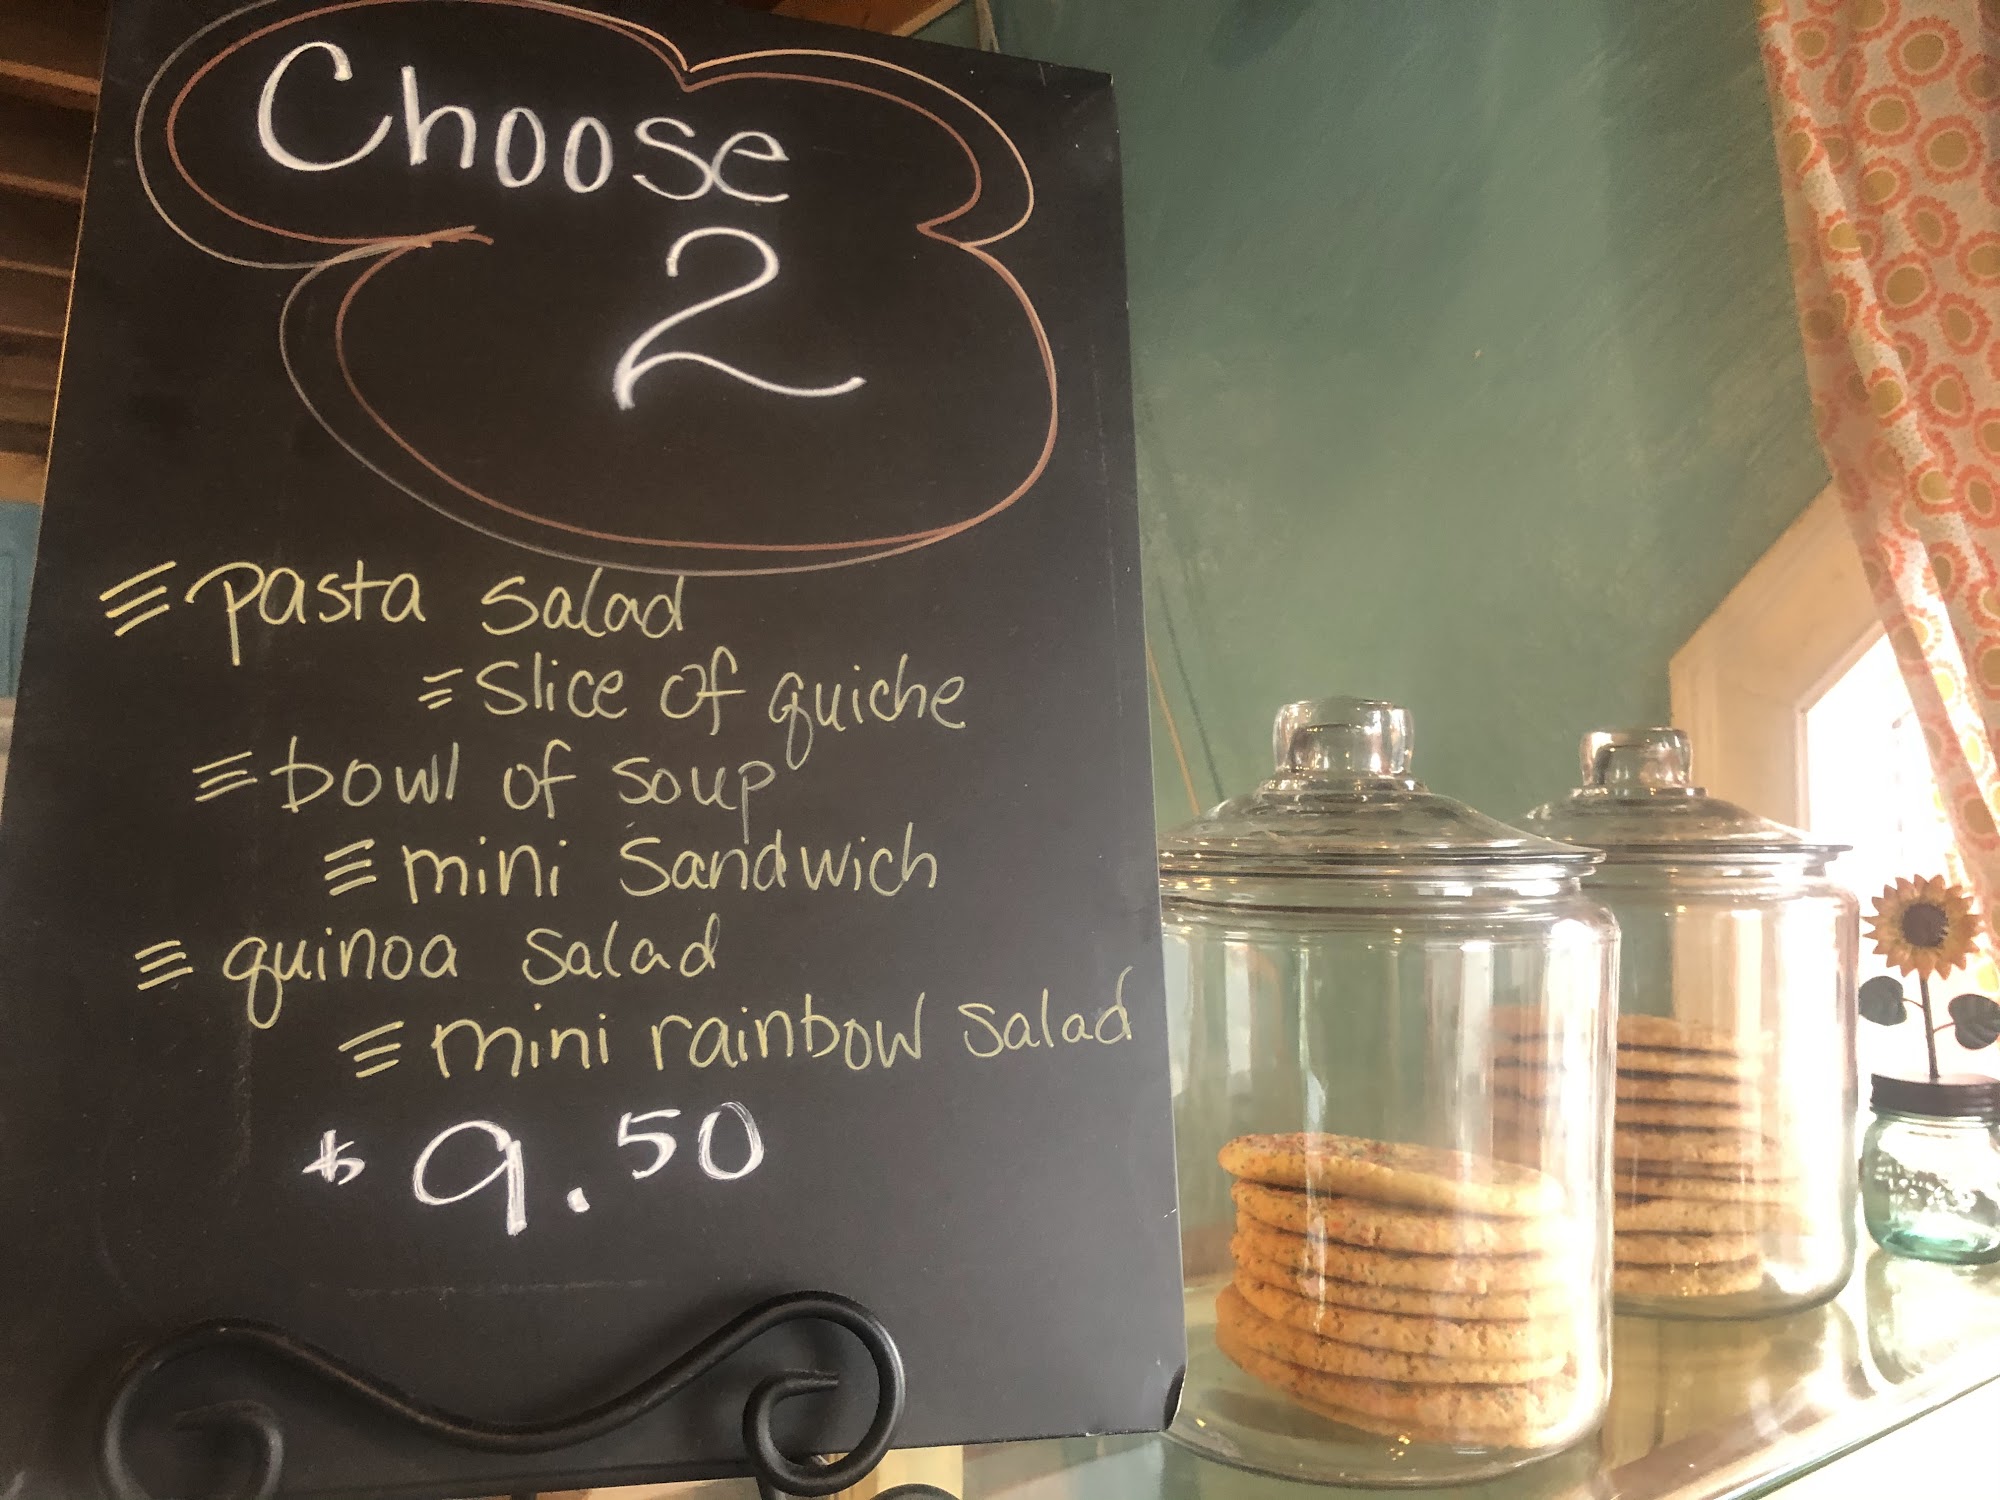 Choose
2
pasta salad
slice of quiche
bowl of soup
mini sandwich
quinoa salad
mini rainbow salad
$9.50